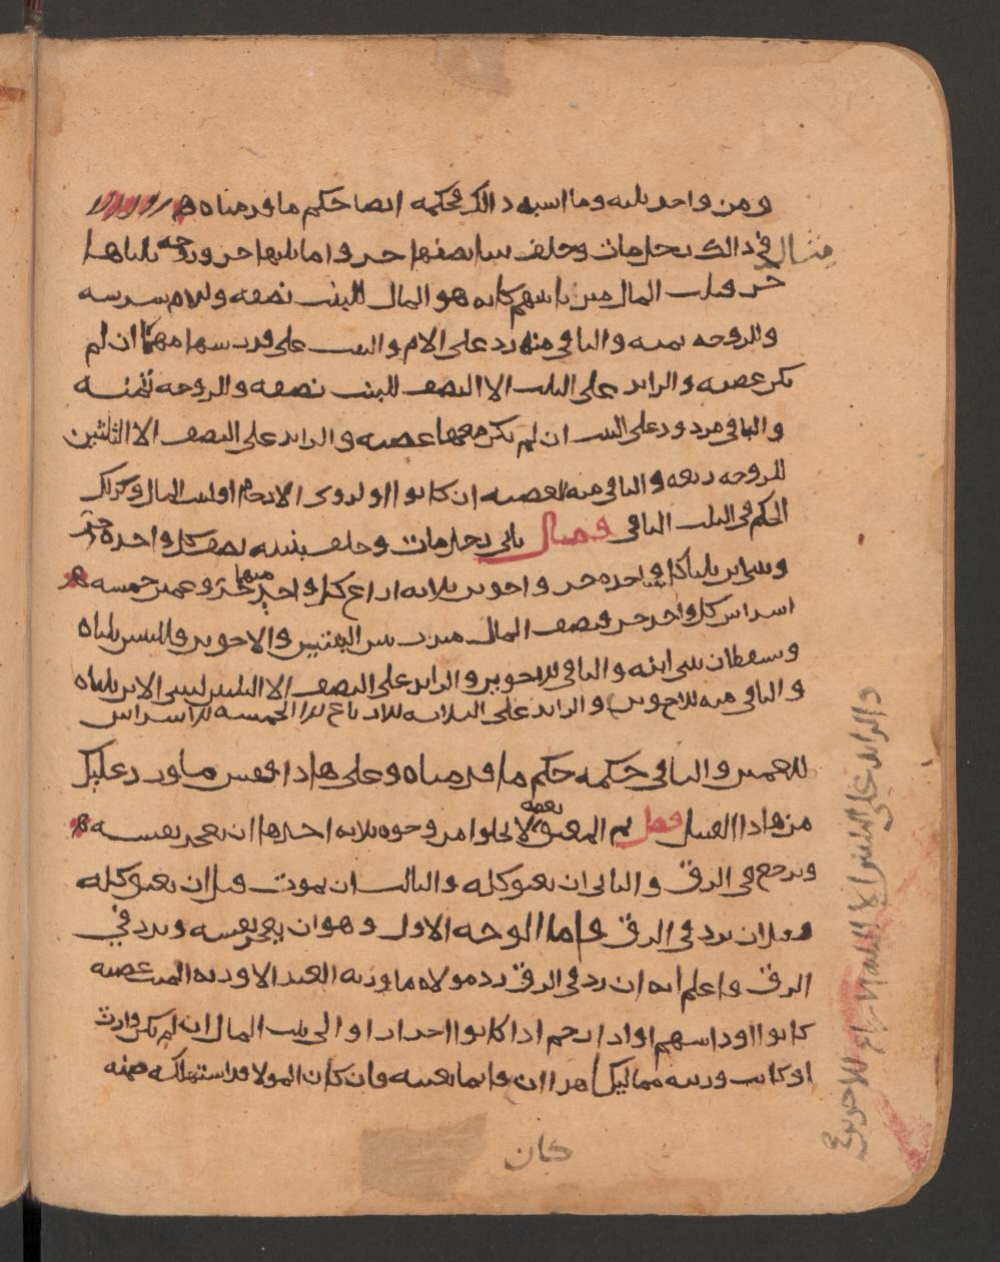 ومن واحد ثلثه وما اشبه ذالك فحكمه ايضا حكم ما قدمناه
مثال في ذالك رجل مات وخلف بنتا نصفها حر واما ثلثها حر وزوجه ثلثاها
حر المال بينهم كانه هو المال للبنت نصفه وللام سدسه
وللزوجه ثمنه والباقي منه رد على الام والبنت على قدر سهامهما ان لم
تكن عصبه والزايد على الثلث الا النصف للبنت نصفه وللزوجه ثمنه
والباقي مردود على البنت ان لم يكن معها عصبه والزايد على النصف الا الثلثين
للزوجه ربعه والباقي منه للعصبه ان كانوا او لذوى الارحام او لبيت المال وكذلك
الحكم في الثلث الباقي و مثال ثاني رجل مات وخلف بنتين نصف كل واحده حر
وبنتى ابن ثلثا كل واحده حر واخوين ثلاثه ارباع كل واحد منهما حر وعمين خمسه
اسداس كل واحد حر فنصف المال بين البنتين والاخوين وللبنتين ثلثاه
ويسقطان بنتى ابنه والباقي للاخوين والزايد على النصف الا الثلثين لبنتى الابن ثلثاه
والباقي منه للاخوين والزايد على الثلاثه الارباع الا الخمسه الاسداس
للعمين والباقي حكمه حكم ما قدمناه وعلى هاذا فقس ما ورد عليك
من هاذا القبيل فصل ثم المعتق بعضه لا يخلوا من وجوه ثلاثه احدها ان يعجز نفسه
ويرجع في الرق والثاني ان يعتق كله والثالث ان يموت قبل ان يعتق كله
وقبل ان يرد في الرق فاما الوجه الاول وهو ان يعجز نفسه ويرد في
الرق فاعلم انه ان رد في الرق رد مولاه ما ورثه العبد الا ورثه الميت عصبه
كانوا او ذا سهم او ذا رحم اذا كانوا احرارا او الى بيت المال ان لم يكن وارث
او كانت ورثته مماليك هذا ان وان كان المولا قد استهلكه ضمنه
كان
والزايد على الثلثين الا الثلاثه الارباع للاخوين